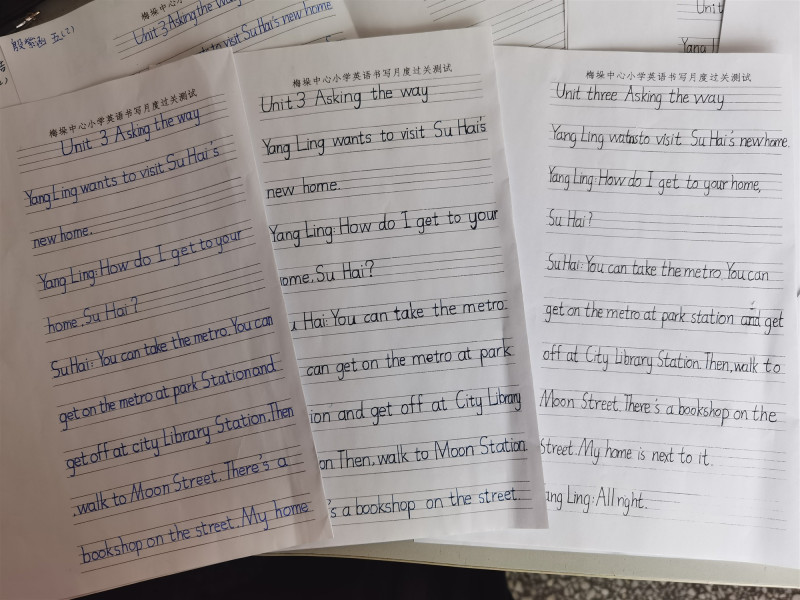 殷紫函 五(2)
梅垛中心小
Unit 3 Asking the way
to visit Su Hai's new home
Unit
Yang
梅垛中心小学英语书写月度过关测试
Unit 3 Asking the way
Yang Ling wants to visit Su Hai's
new home.
Yang Ling: How do I get to your
home, Su Hai?
Su Hai: You can take the metro. You can
get on the metro at park Station and
get off at city Library Station. Then
walk to Moon Street. There's a
bookshop on the street. My home
梅垛中心小学英语书写月度过关测试
Unit 3 Asking the way
Yang Ling wants to visit Su Hai's
new home.
Yang Ling: How do I get to your
ome, Su Hai?
u Hai: You can take the metro.
can get on the metro at park
ion and get off at City Library
on. Then, walk to Moon Station.
's a bookshop on the street.
梅垛中心小学英语书写月度过关测试
Unit three Asking the way
Yang Ling watnsto visit Su Hai's new home.
Yang Ling: How do I get to your home,
Su Hai?
Su Hai: You can take the metro. You can
get on the metro at park station and get
off at City Library Station. Then, walk to
Moon Street. There's a bookshop on the
Street. My home is next to it.
ang Ling: All right.